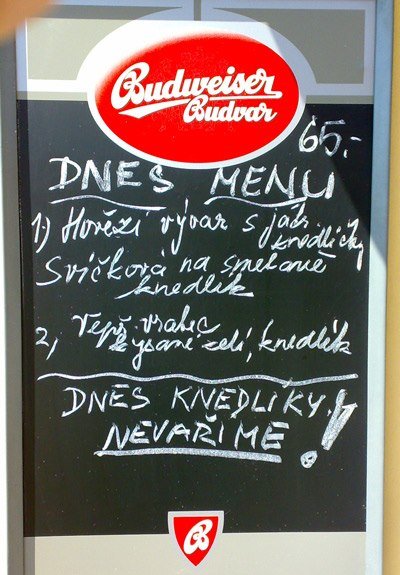 Budweiser
Budvar
65,-
DNES MENU
1) Hovězí vývar s játr.
knedlíčky
Svíčková na smetaně
knedlík
2, Vepř.
kysané zelí, knedlík
DNES KNEDLÍKY
NEVAŘÍME!
B